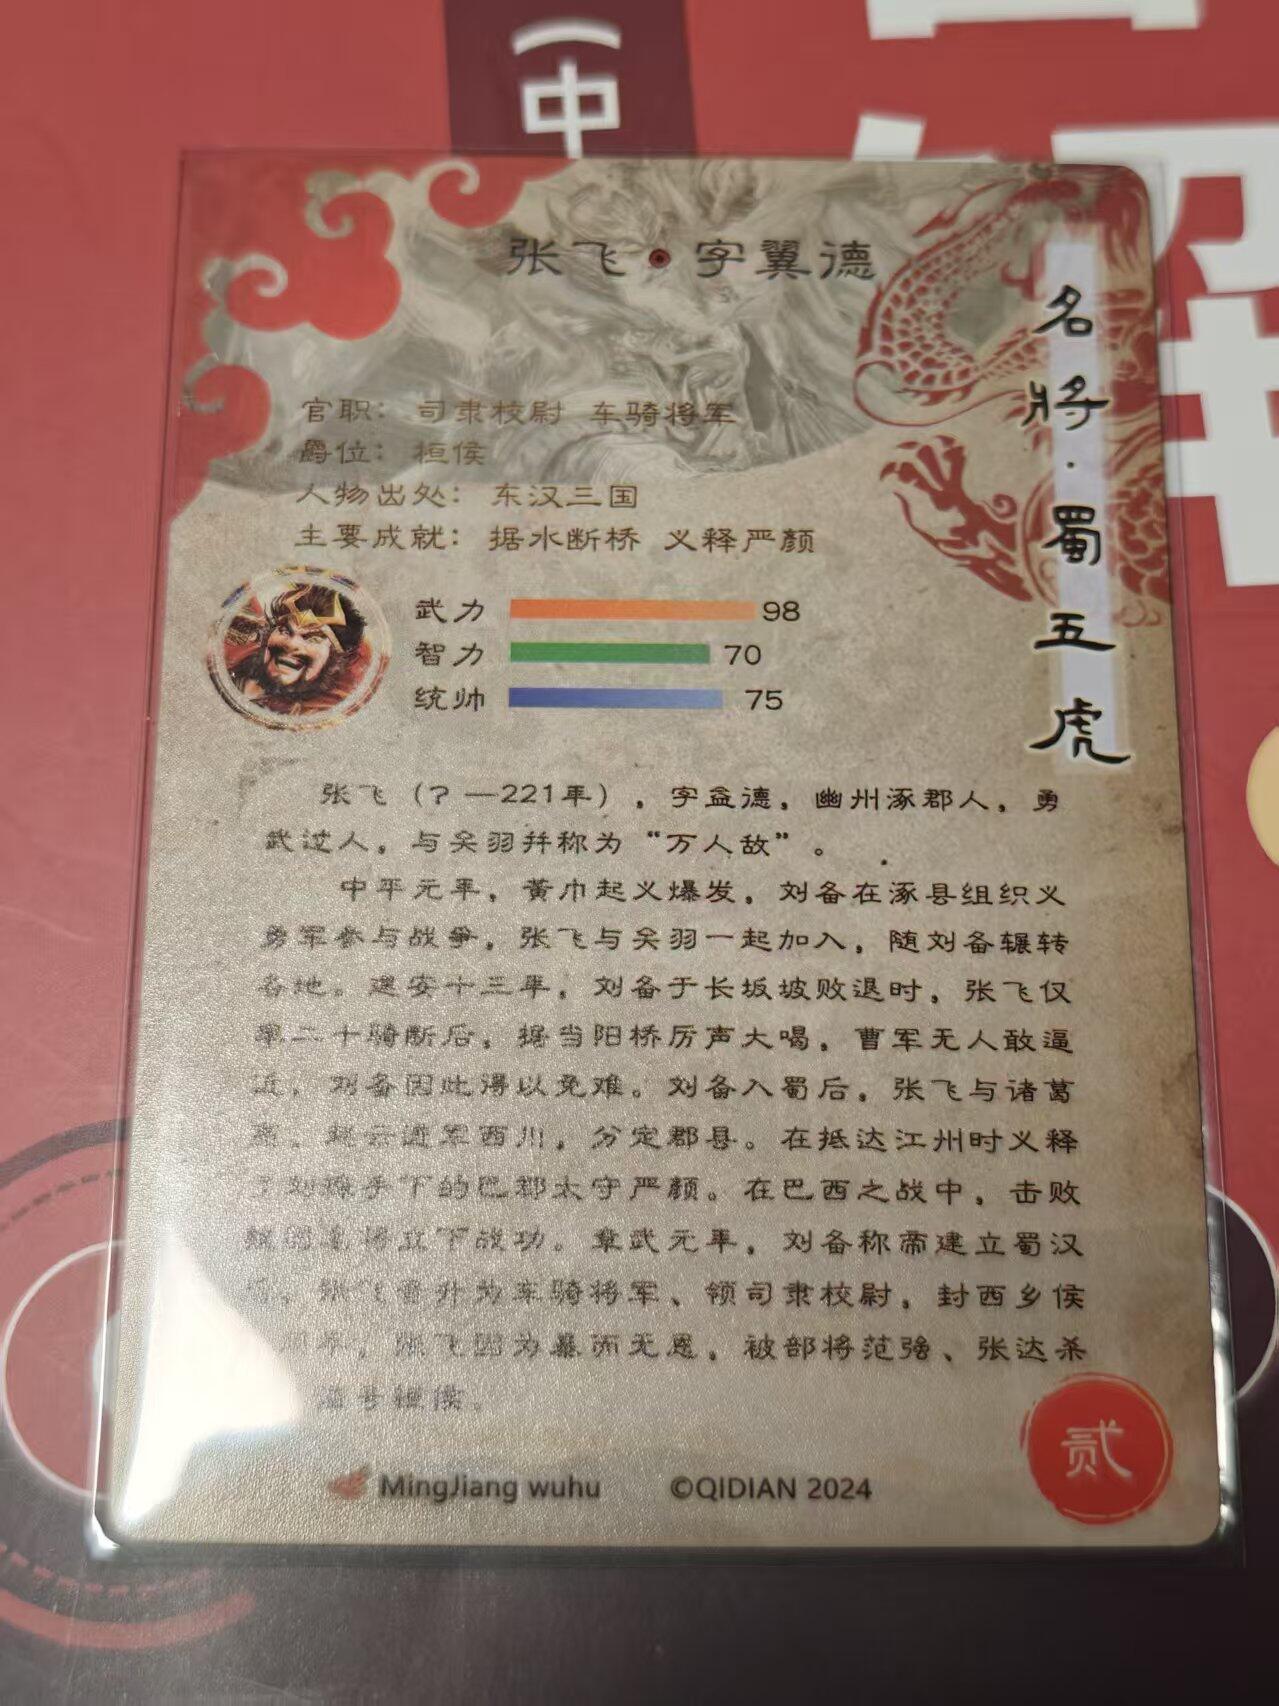 （中
张飞·字翼德
名将·蜀五虎
官职：司隶校尉 车骑将军
爵位：桓侯
人物出处：东汉三国
主要成就：据水断桥 义释严颜
武力 98
智力 70
统帅 75
张飞（？—221年），字益德，幽州涿郡人，勇
武过人，与关羽并称为“万人敌”。
中平元年，黄巾起义爆发，刘备在涿县组织义
勇军参与战争，张飞与关羽一起加入，随刘备辗转
各地。建安十三年，刘备于长坂坡败退时，张飞仅
率二十骑断后，据当阳桥厉声大喝，曹军无人敢逼
近，刘备因此得以免难。刘备入蜀后，张飞与诸葛
亮、赵云进军西川，分定郡县。在抵达江州时义释
了刘璋手下的巴郡太守严颜。在巴西之战中，击败
立下战功。章武元年，刘备称帝建立蜀汉
张飞晋升为车骑将军、领司隶校尉，封西乡侯
张飞因为暴而无恩，被部将范强、张达杀
谥号桓侯。
贰
MingJiang wuhu ©QIDIAN 2024